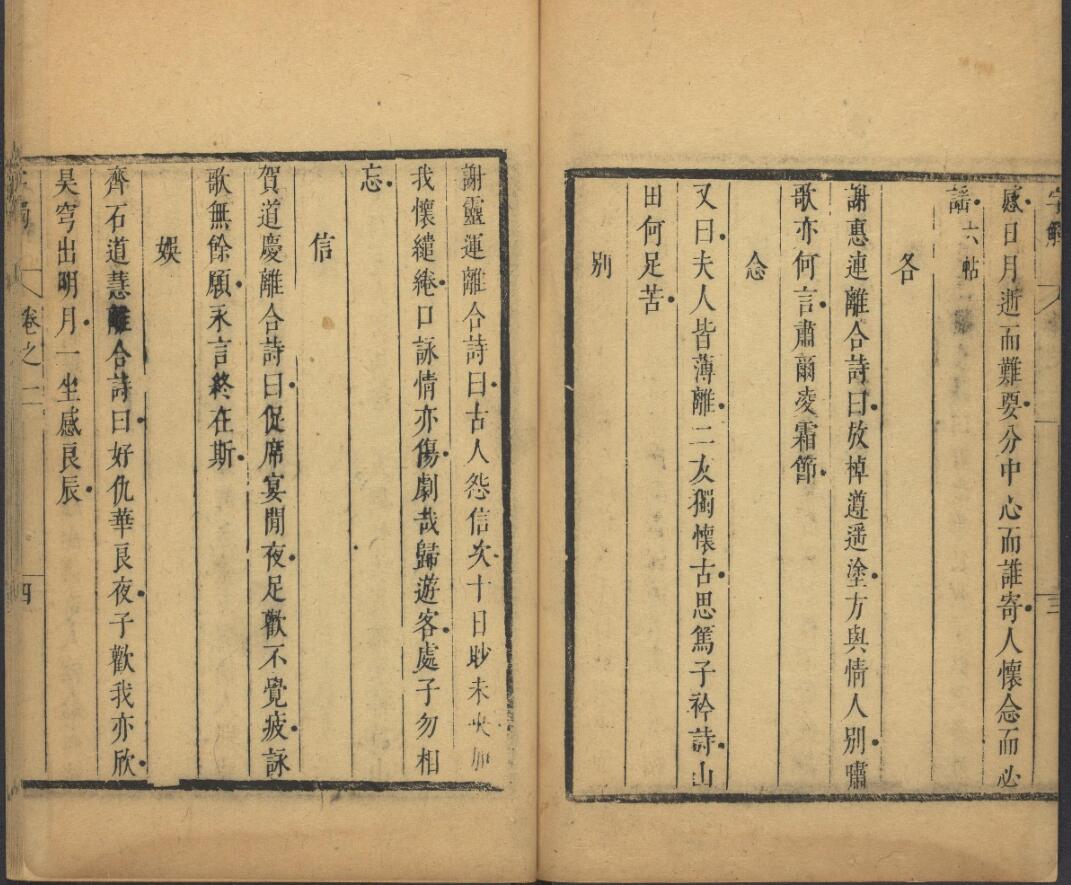 字觸
三
感日月逝而難要分中心而誰寄人懷念而必
謡六帖
各
謝惠連離合詩曰放棹遵遥塗方與情人别嘯
歌亦何言肅爾凌霜節
念
又曰夫人皆薄離二友獨懷古思篤子衿詩山
田何足苦
别
謝靈運離合詩曰古人怨信次十日眇未央加
我懷繾綣口詠情亦傷劇哉歸遊客處子勿相
忘
信
賀道慶離合詩曰促席宴閒夜足歡不覺疲詠
歌無餘願永言終在斯
娛
齊石道慧離合詩曰好仇華良夜子歡我亦欣
昊穹出明月一坐感良辰
卷之二
四